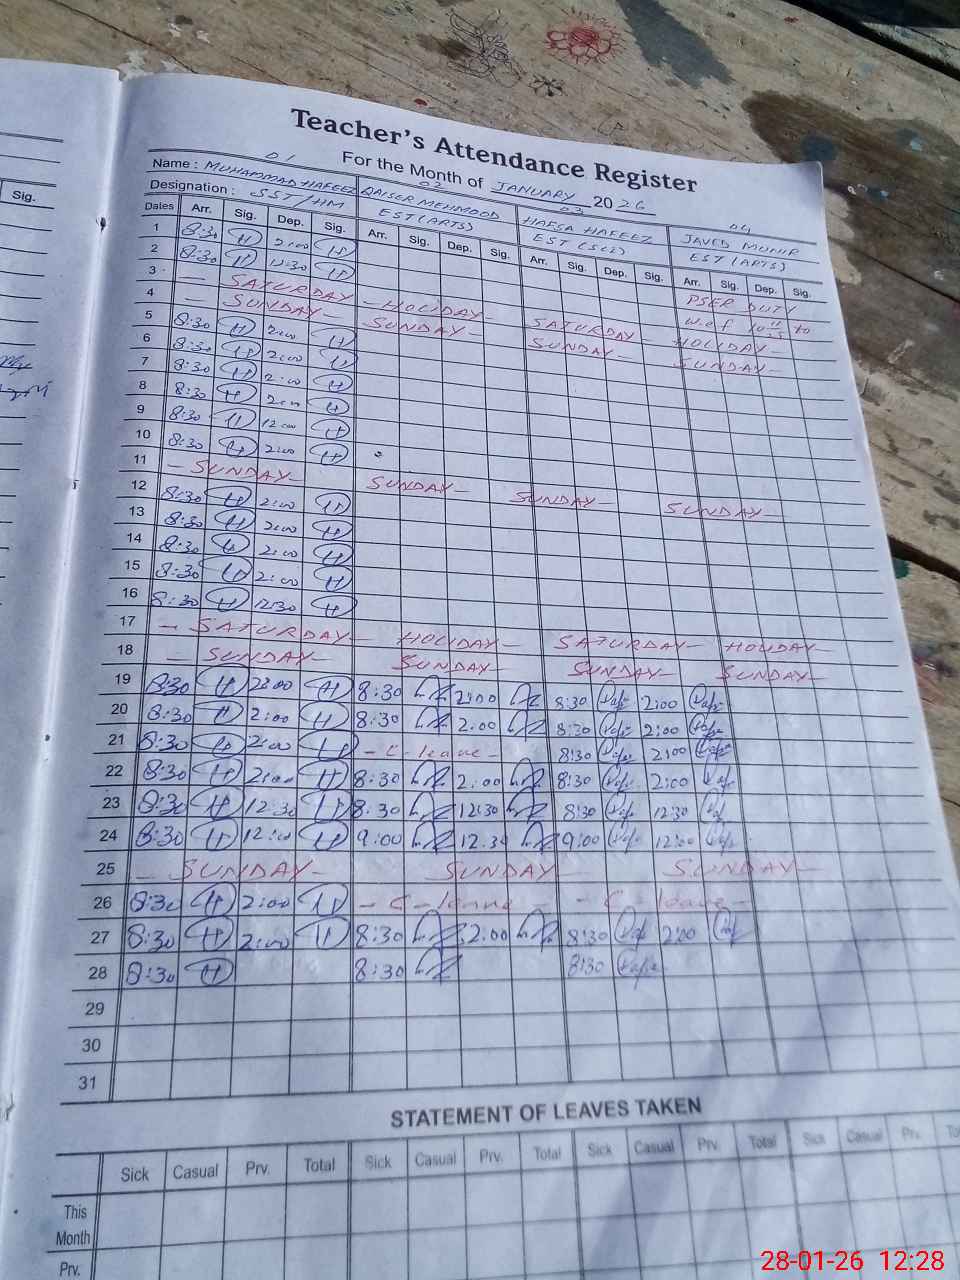 Teacher's Attendance Register
For the Month of JANUARY 2026
01 02 03 04
Name : MUHAMMAD HAFEEZ QAISER MEHMOOD HAFSA HAFEEZ JAVED MUNIR
Designation : SST/HM EST (ARTS) EST (SCI) EST (ARTS)
Sig.
Dates Arr. Sig. Dep. Sig. Arr. Sig. Dep. Sig. Arr. Sig. Dep. Sig. Arr. Sig. Dep. Sig.
1 8:30 H 2:00 H PSER DUTY
2 8:30 H 12:30 H w.e.f to
3 - SATURDAY - HOLIDAY - SATURDAY - HOLIDAY -
4 - SUNDAY - SUNDAY - SUNDAY - SUNDAY -
5 8:30 H 2:00 H
6 8:30 H 2:00 H
7 8:30 H 2:00 H
8 8:30 H 2:00 H
9 8:30 H 12:00 H
10 8:30 H 2:00 H
11 - SUNDAY - SUNDAY - SUNDAY - SUNDAY -
12 8:30 H 2:00 H
13 8:30 H 2:00 H
14 8:30 H 2:00 H
15 8:30 H 2:00 H
16 8:30 H 12:30 H
17 - SATURDAY - HOLIDAY - SATURDAY - HOLIDAY -
18 - SUNDAY - SUNDAY - SUNDAY - SUNDAY -
19 8:30 H 2:00 H 8:30 2:00 8:30 2:00
20 8:30 H 2:00 H 8:30 2:00 8:30 2:00
21 8:30 H 2:00 H - C-leave - 8:30 2:00
22 8:30 H 2:00 H 8:30 2:00 8:30 2:00
23 8:30 H 12:30 H 8:30 12:30 8:30 12:30
24 8:30 H 12:00 H 9:00 12:30 9:00 12:00
25 - SUNDAY - SUNDAY - SUNDAY -
26 8:30 H 2:00 H - C-leave - - C-leave -
27 8:30 H 2:00 H 8:30 2:00 8:30 2:00
28 8:30 H 8:30 8:30
29
30
31
STATEMENT OF LEAVES TAKEN
Sick Casual Prv. Total Sick Casual Prv. Total Sick Casual Prv. Total Sick Casual Prv.
This Month
Prv.
28-01-26 12:28